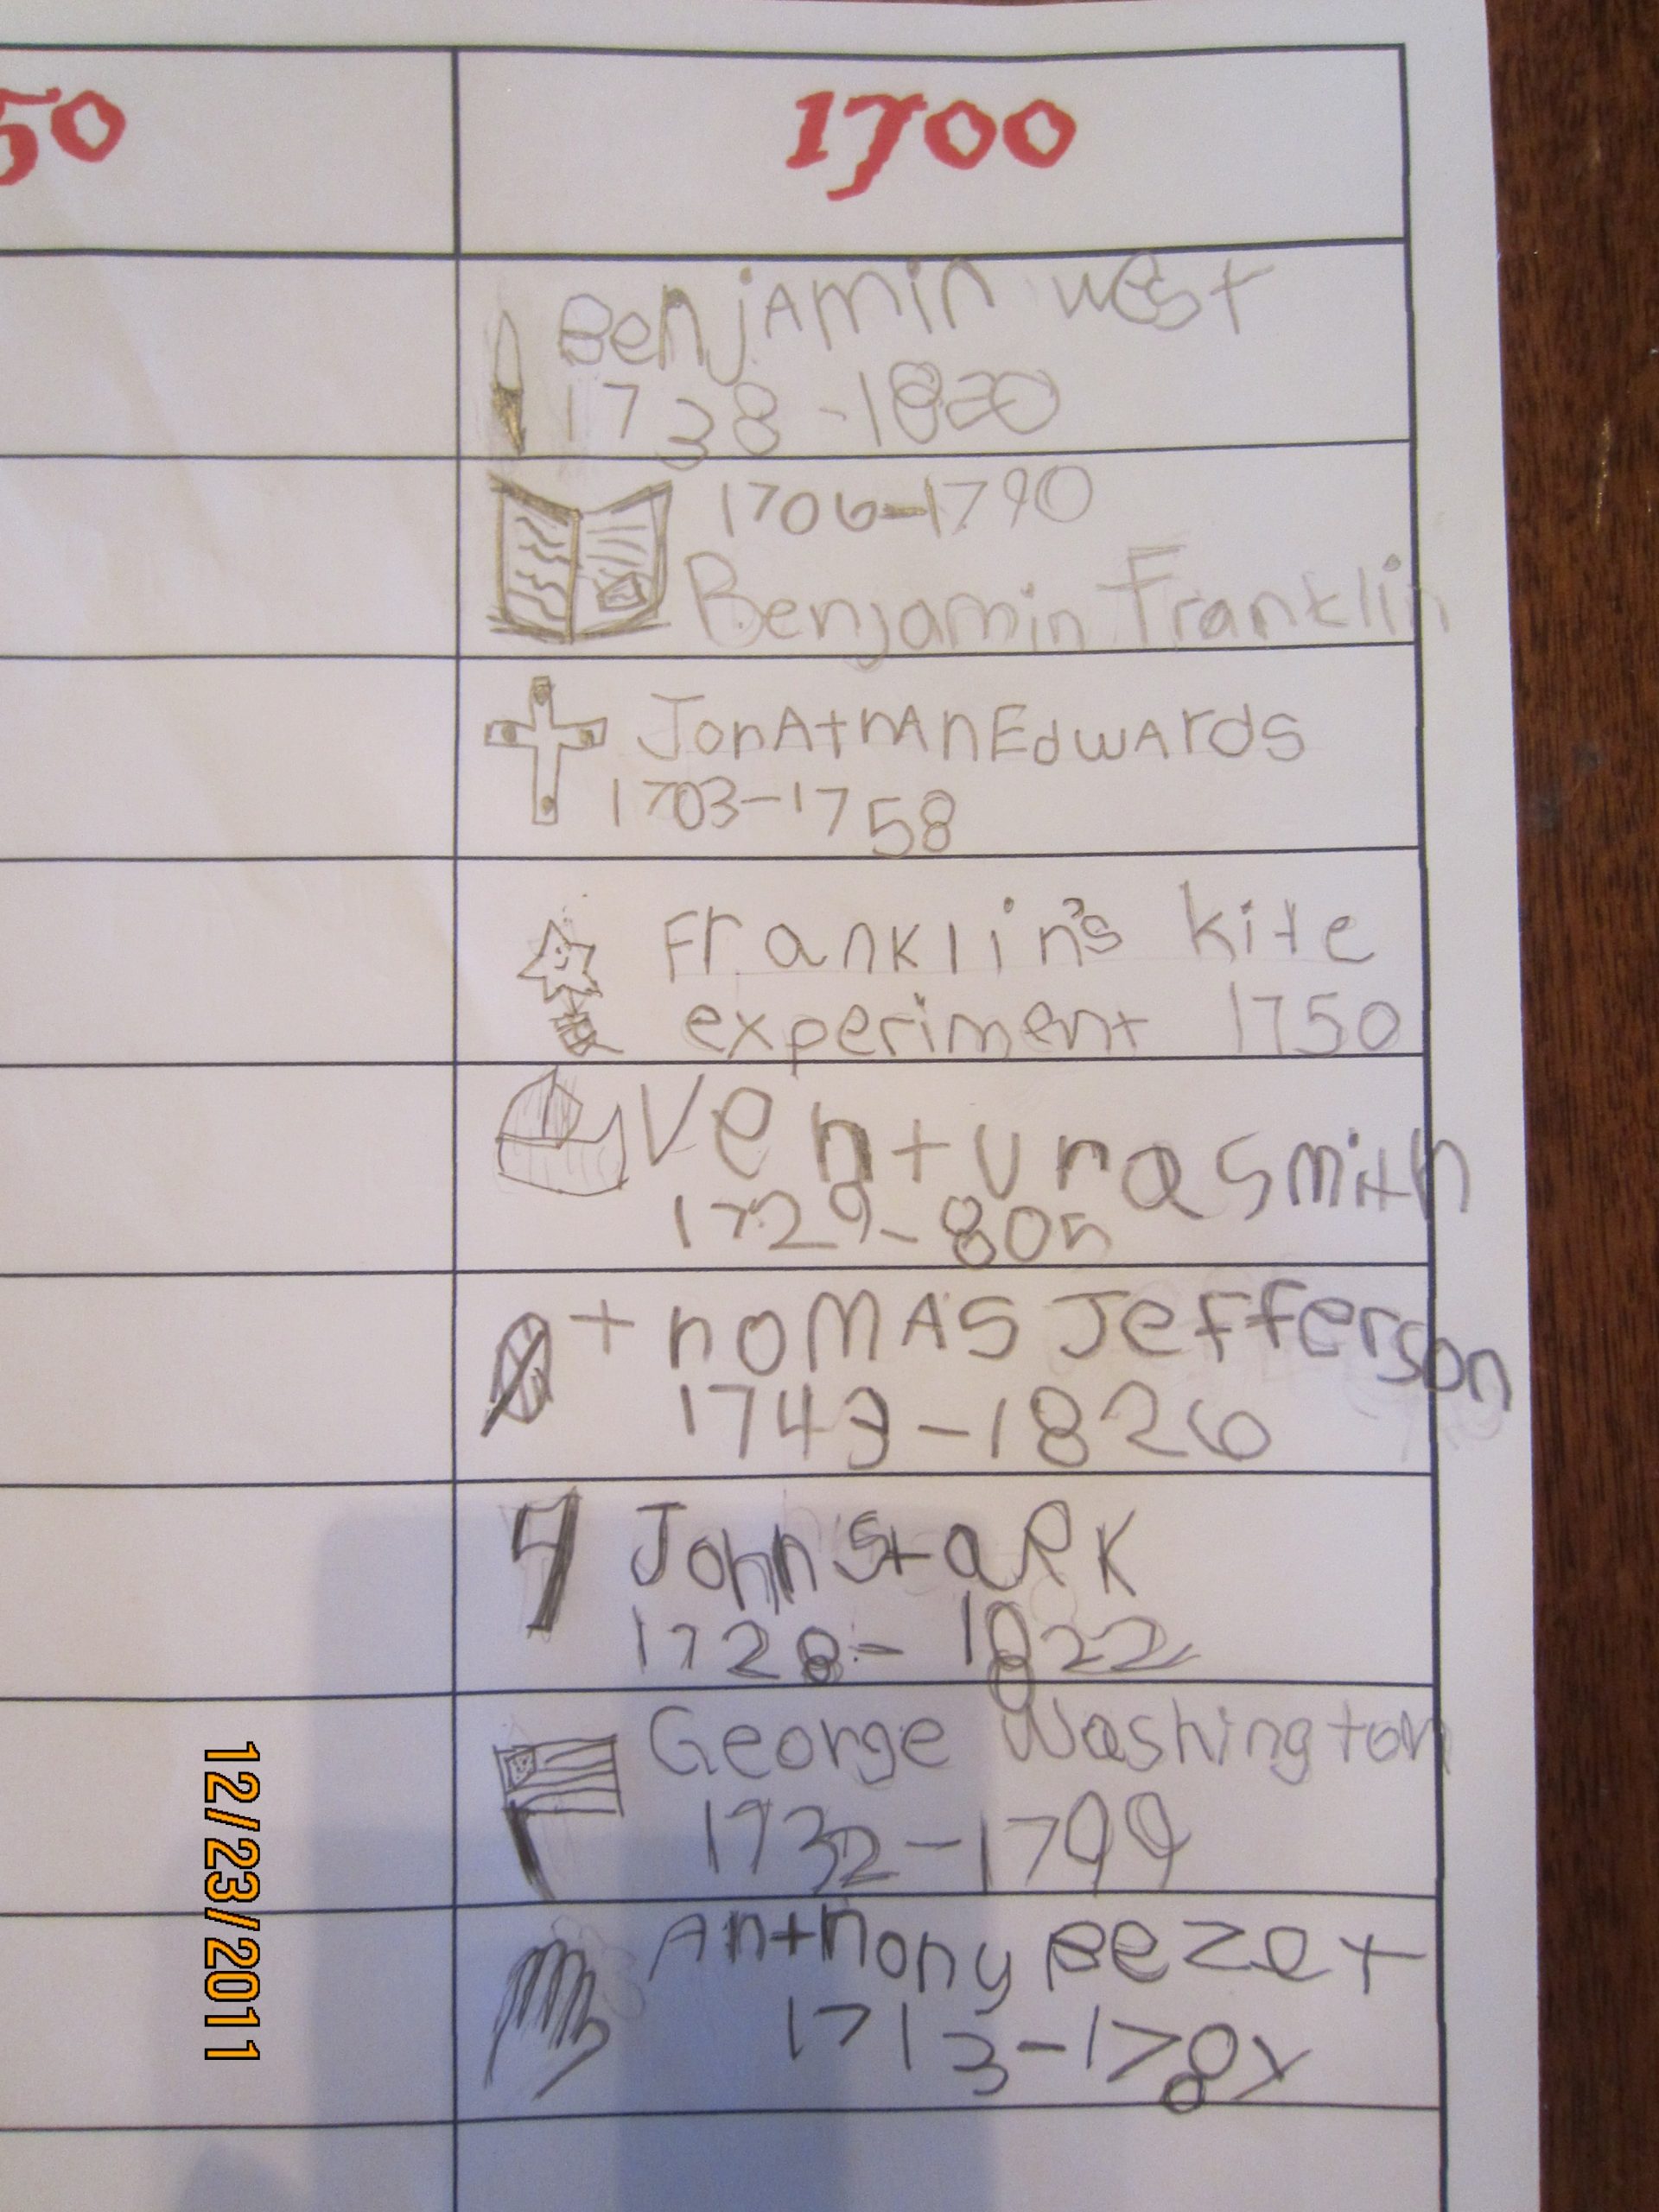 50
1700
Benjamin west
1738-1820
1706-1790
Benjamin Franklin
Jonathan Edwards
1703-1758
Franklin's kite
experiment 1750
Ventura smith
1729-
thomas Jefferson
1743-1826
John Stark
1728-1822
George Washington
1732-1799
Anthony Bezet
1713-178
12/23/2011